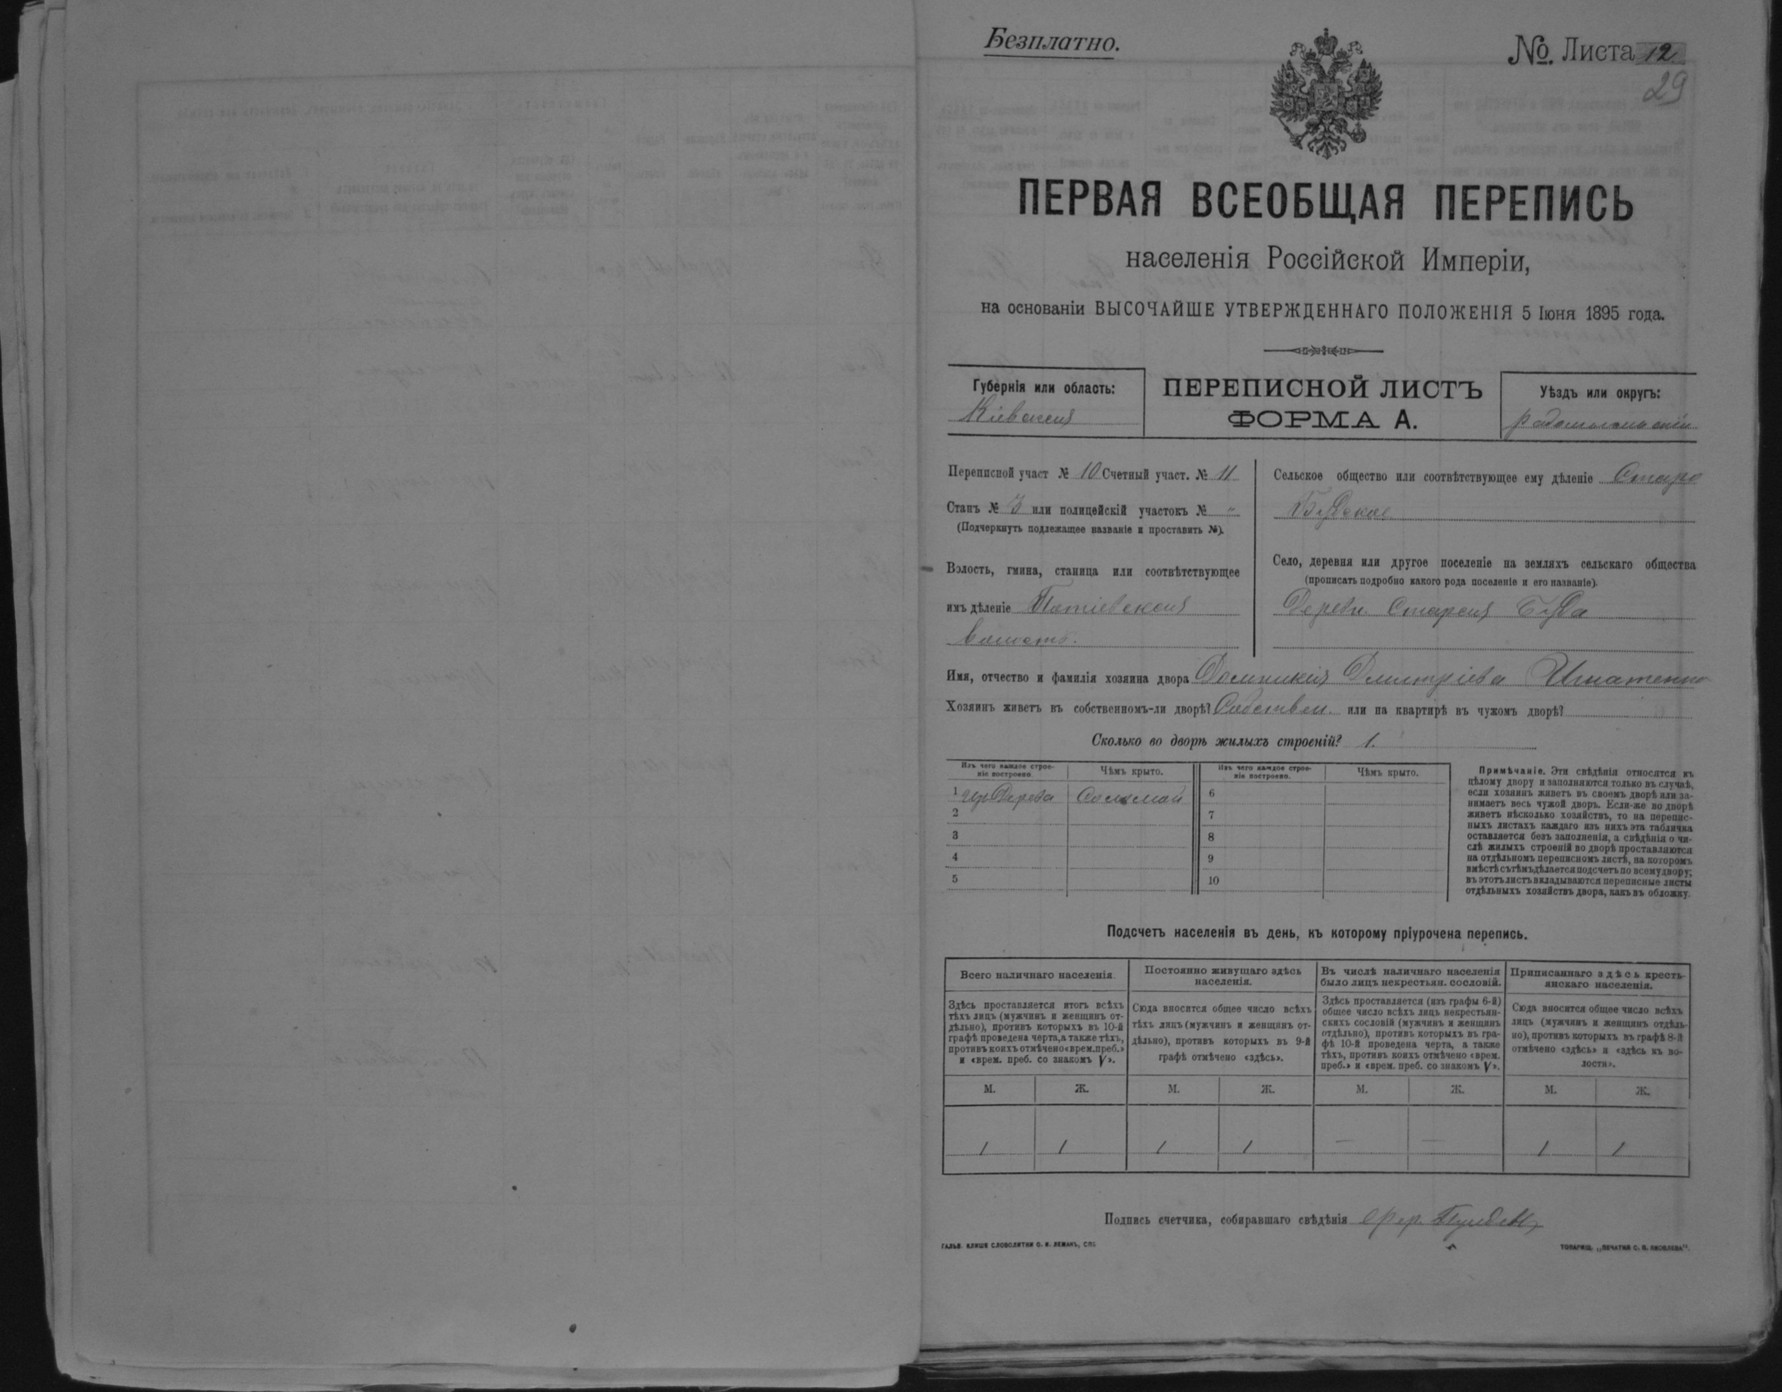 Безплатно.
№. Листа 12
29
ПЕРВАЯ ВСЕОБЩАЯ ПЕРЕПИСЬ
населенія Россійской Имперіи,
на основаніи ВЫСОЧАЙШЕ УТВЕРЖДЕННАГО ПОЛОЖЕНІЯ 5 Іюня 1895 года.
Губернія или область:
Кіевская
ПЕРЕПИСНОЙ ЛИСТЪ
ФОРМА А.
Уѣздъ или округъ:
Радомысльскій
Переписной участ № 10 Счетный участ. № 11
Станъ № 3 или полицейскій участокъ № -
(Подчеркнуть подлежащее названіе и проставить №).
Волость, гмина, станица или соотвѣтствующее
имъ дѣленіе Потіевская
волость.
Сельское общество или соотвѣтствующее ему дѣленіе Старо
Будское
Село, деревня или другое поселеніе на земляхъ сельскаго общества
(прописать подробно какого рода поселеніе и его названіе).
Деревн. Старая Буда
Имя, отчество и фамилія хозяина двора Домникія Дмитріева Игнатенко
Хозяинъ живетъ въ собственномъ-ли дворѣ? Собствен. или на квартирѣ въ чужомъ дворѣ?
Сколько во дворѣ жилыхъ строеній? 1.
Изъ чего каждое строе-
ніе построено.
Чѣмъ крыто.
Изъ чего каждое строе-
ніе построено.
Чѣмъ крыто.
1 изъ Дерева Соломой
2
3
4
5
6
7
8
9
10
Примѣчаніе. Эти свѣдѣнія относятся къ
цѣлому двору и заполняются только въ случаѣ,
если хозяинъ живетъ въ своемъ дворѣ или за-
нимаетъ весь чужой дворъ. Если-же во дворѣ
живетъ нѣсколько хозяйствъ, то на перепис-
ныхъ листахъ каждаго изъ нихъ эта табличка
оставляется безъ заполненія, а свѣдѣнія о чи-
слѣ жилыхъ строеній во дворѣ проставляются
на отдѣльномъ переписномъ листѣ, на которомъ
вмѣстѣ съ тѣмъ дѣлается подсчетъ по всему двору;
въ этотъ листъ вкладываются переписные листы
отдѣльныхъ хозяйствъ двора, какъ въ обложку.
Подсчетъ населенія въ день, къ которому пріурочена перепись.
Всего наличнаго населенія.
Здѣсь проставляется итогъ всѣхъ
тѣхъ лицъ (мужчинъ и женщинъ от-
дѣльно), противъ которыхъ въ 10-й
графѣ проведена черта, а также тѣхъ,
противъ коихъ отмѣчено «врем. преб.»
и «врем. преб. со знакомъ V».
Постоянно живущаго здѣсь
населенія.
Сюда вносится общее число всѣхъ
тѣхъ лицъ (мужчинъ и женщинъ от-
дѣльно), противъ которыхъ въ 9-й
графѣ отмѣчено «здѣсь».
Въ числѣ наличнаго населенія
было лицъ некрестьян. сословій.
Здѣсь проставляется (изъ графы 6-й)
общее число всѣхъ лицъ некрестьян-
скихъ сословій (мужчинъ и женщинъ
отдѣльно), противъ которыхъ въ гра-
фѣ 10-й проведена черта, а также
тѣхъ, противъ коихъ отмѣчено «врем.
преб.» и «врем. преб. со знакомъ V».
Приписаннаго здѣсь кресть-
янскаго населенія.
Сюда вносится общее число всѣхъ
лицъ (мужчинъ и женщинъ отдѣль-
но), противъ которыхъ въ графѣ 8-й
отмѣчено «здѣсь» и «здѣсь въ во-
лости».
М. Ж. М. Ж. М. Ж. М. Ж.
1 1 1 1 — — 1 1
Подпись счетчика, собиравшаго свѣдѣнія
ГАЛЬВ. КЛИШЕ СЛОВОЛИТНИ О. И. ЛЕМАНЪ, СПБ.
ТОВАРИЩ. „ПЕЧАТНЯ С. П. ЯКОВЛЕВА".